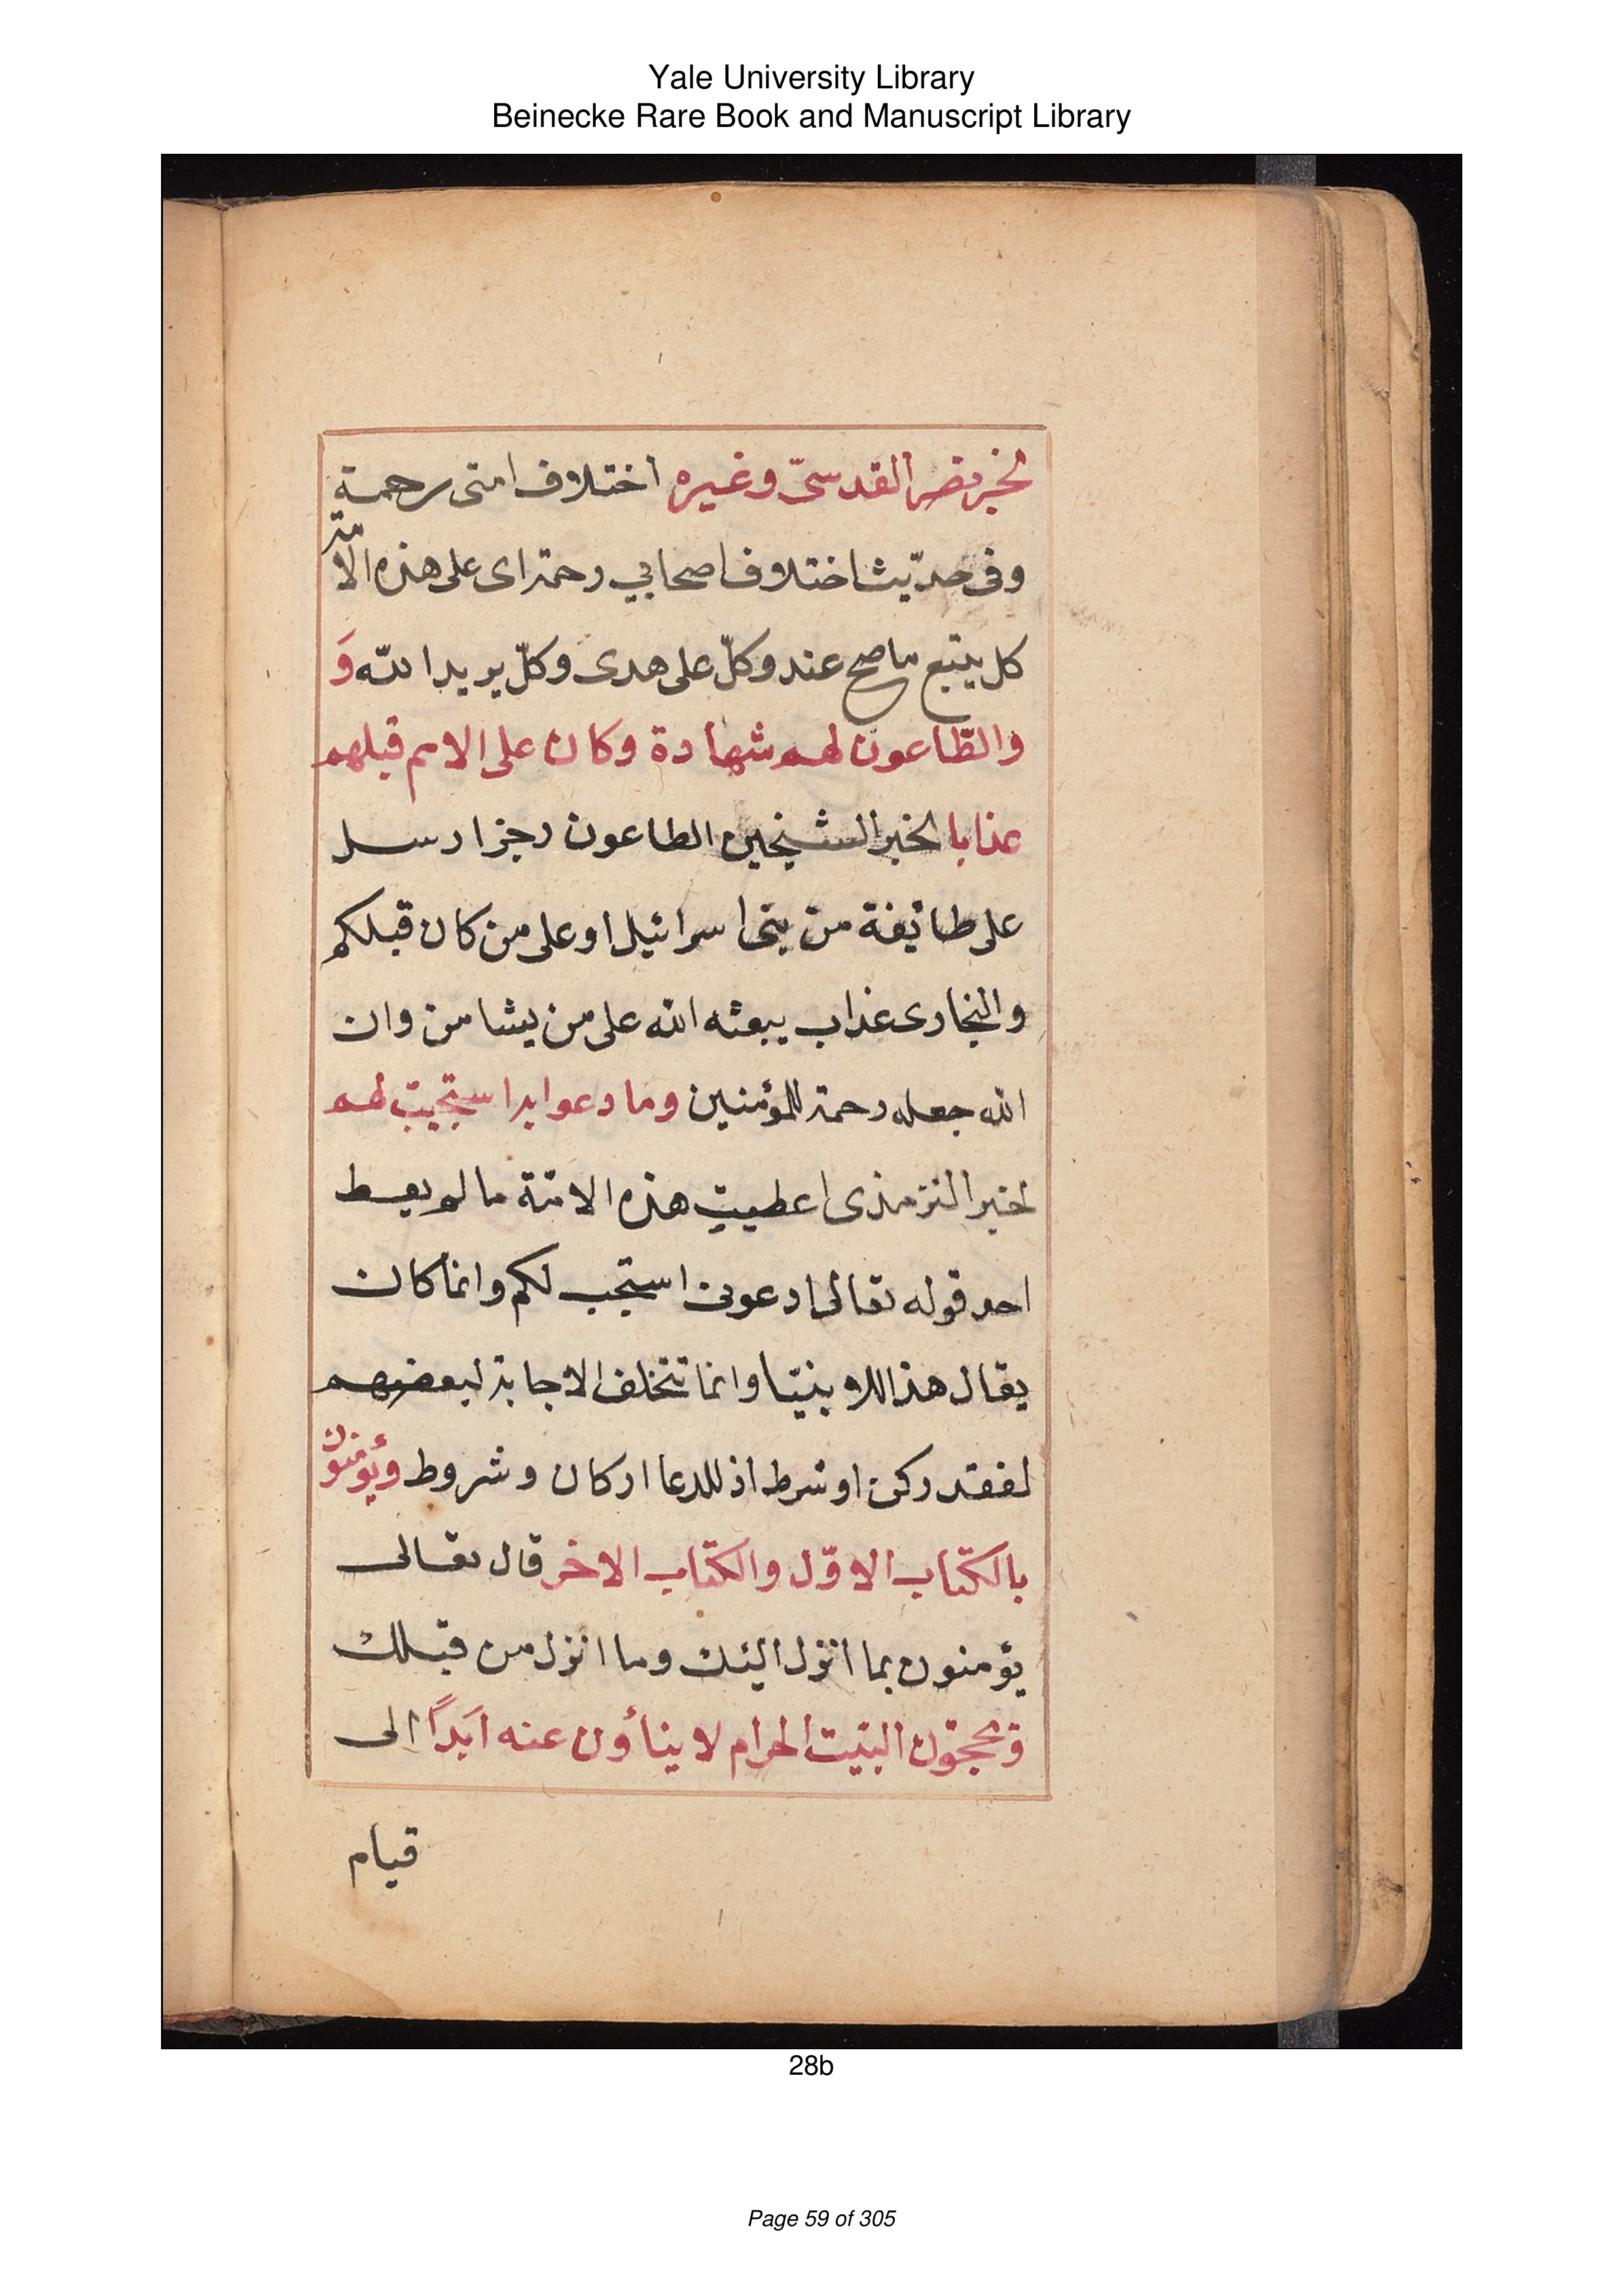 Yale University Library
Beinecke Rare Book and Manuscript Library
لخبر نصر القدسىّ وغيره اختلاف امتى رحمة
وفى حديث اختلاف اصحابي رحمة اى على هذه الامة
كل يتبع ما صح عنده وكلّ على هدى وكلّ يريد الله وَ
والطّاعون لهم شهادة وكان على الامم قبلهم
عذابا لخبر الشيخين الطاعون رجز ارسل
على طائفة من بنى اسرائيل او على من كان قبلكم
والبخارى عذاب يبعثه الله على من يشا من وان
الله جعله رحمة للمؤمنين وما دعوا بدا ستجيب لهم
لخبر الترمذى اعطيت هذه الامة ما لم يعط
احد قوله تعالى ادعونى استجب لكم وانما كان
يقال هذا للانبيّا وانما تتخلف الاجابة لبعضهم
لفقد ركن او شرط اذ للدعا اركان وشروط ويؤمنون
بالكتاب الاوّل والكتاب الاخر قال تعالى
يؤمنون بما انزل اليك وما انزل من قبلك
ويحجّون البيت الحرام لا ينأون عنه ابَداً الى
قيام
28b
Page 59 of 305